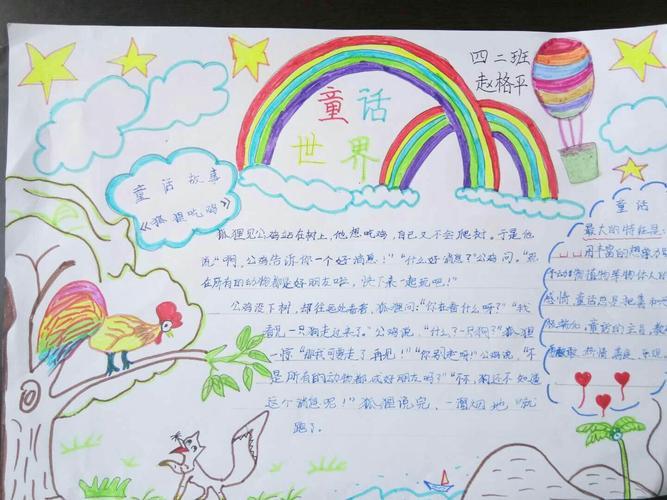 四二班
赵格平
童话
世界
童话故事
《狐狸吃鸡》
狐狸见公鸡站在树上，他想吃鸡，自己又不会爬树。于是他
说"啊，公鸡告诉你一个好消息！""什么好消息了"公鸡问。"现
在所有的动物都是好朋友啦，快下来一起玩吧！"
公鸡没下树，却往远处看看，狐狸问："你在看什么呀？""我
看见一只狗走过来了。"公鸡说。"什么？一只狗？"狐狸
一惊"那我可要走了再见！""你别走呀！"公鸡说，"不
是所有的动物都成好朋友吗？""不，狗还不知道
这个消息呢！"狐狸说完，一溜烟地"就
跑了。
童话
最大的特征是：
用丰富的想象力
动植物等物体人
感情，童话总是把真和
童话的主旨，教
热情